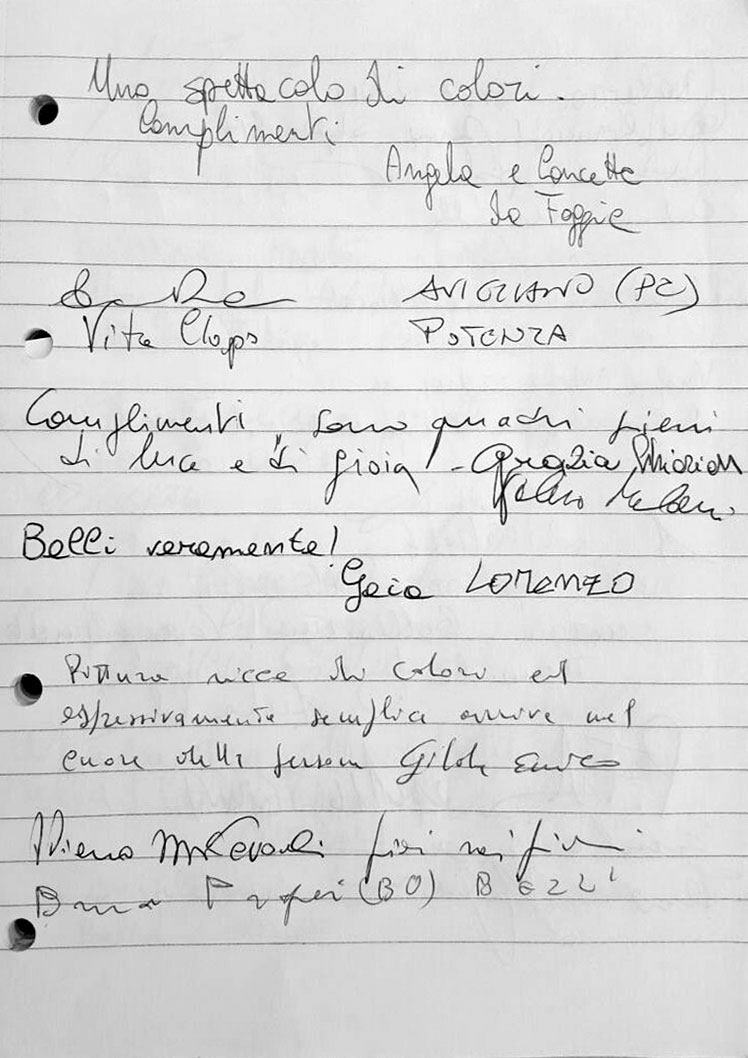 Uno spettacolo di colori.
Complimenti
Angela e Concetta
da Foggia
AVIGLIANO (PZ)
Vita Claps POTENZA
Complimenti, sono quadri pieni
di luce e di gioia! - Grazia
Belli veramente!
Gaia LORENZO
Pittura ricca di colori ed
espressivamente semplice arriva nel
cuore della persona Gilda Enrico
(BO)